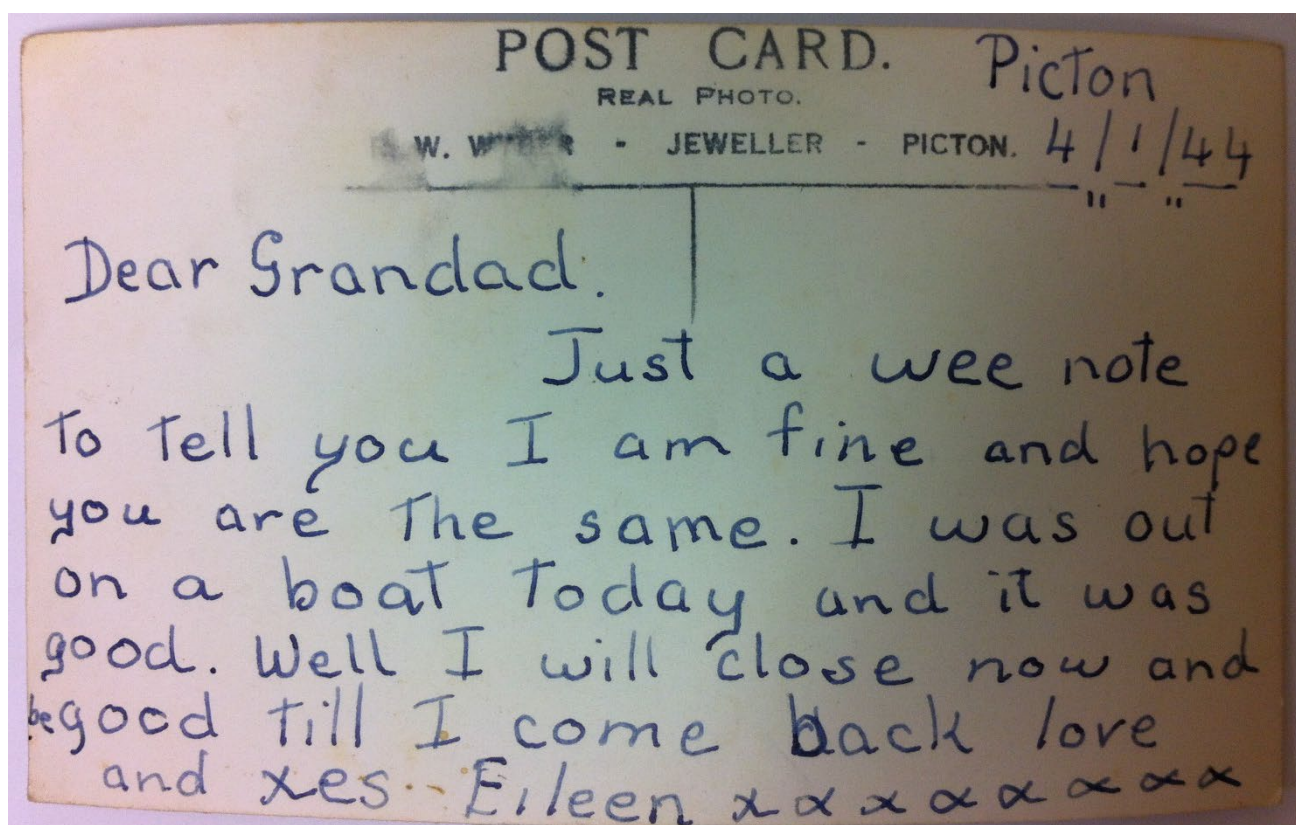 POST CARD. Picton
REAL PHOTO.
W. - JEWELLER - PICTON. 4/1/44
Dear Grandad.
Just a wee note
to tell you I am fine and hope
you are the same. I was out
on a boat today and it was
good. Well I will close now and
be good till I come back love
and xes Eileen x x x x x x x x